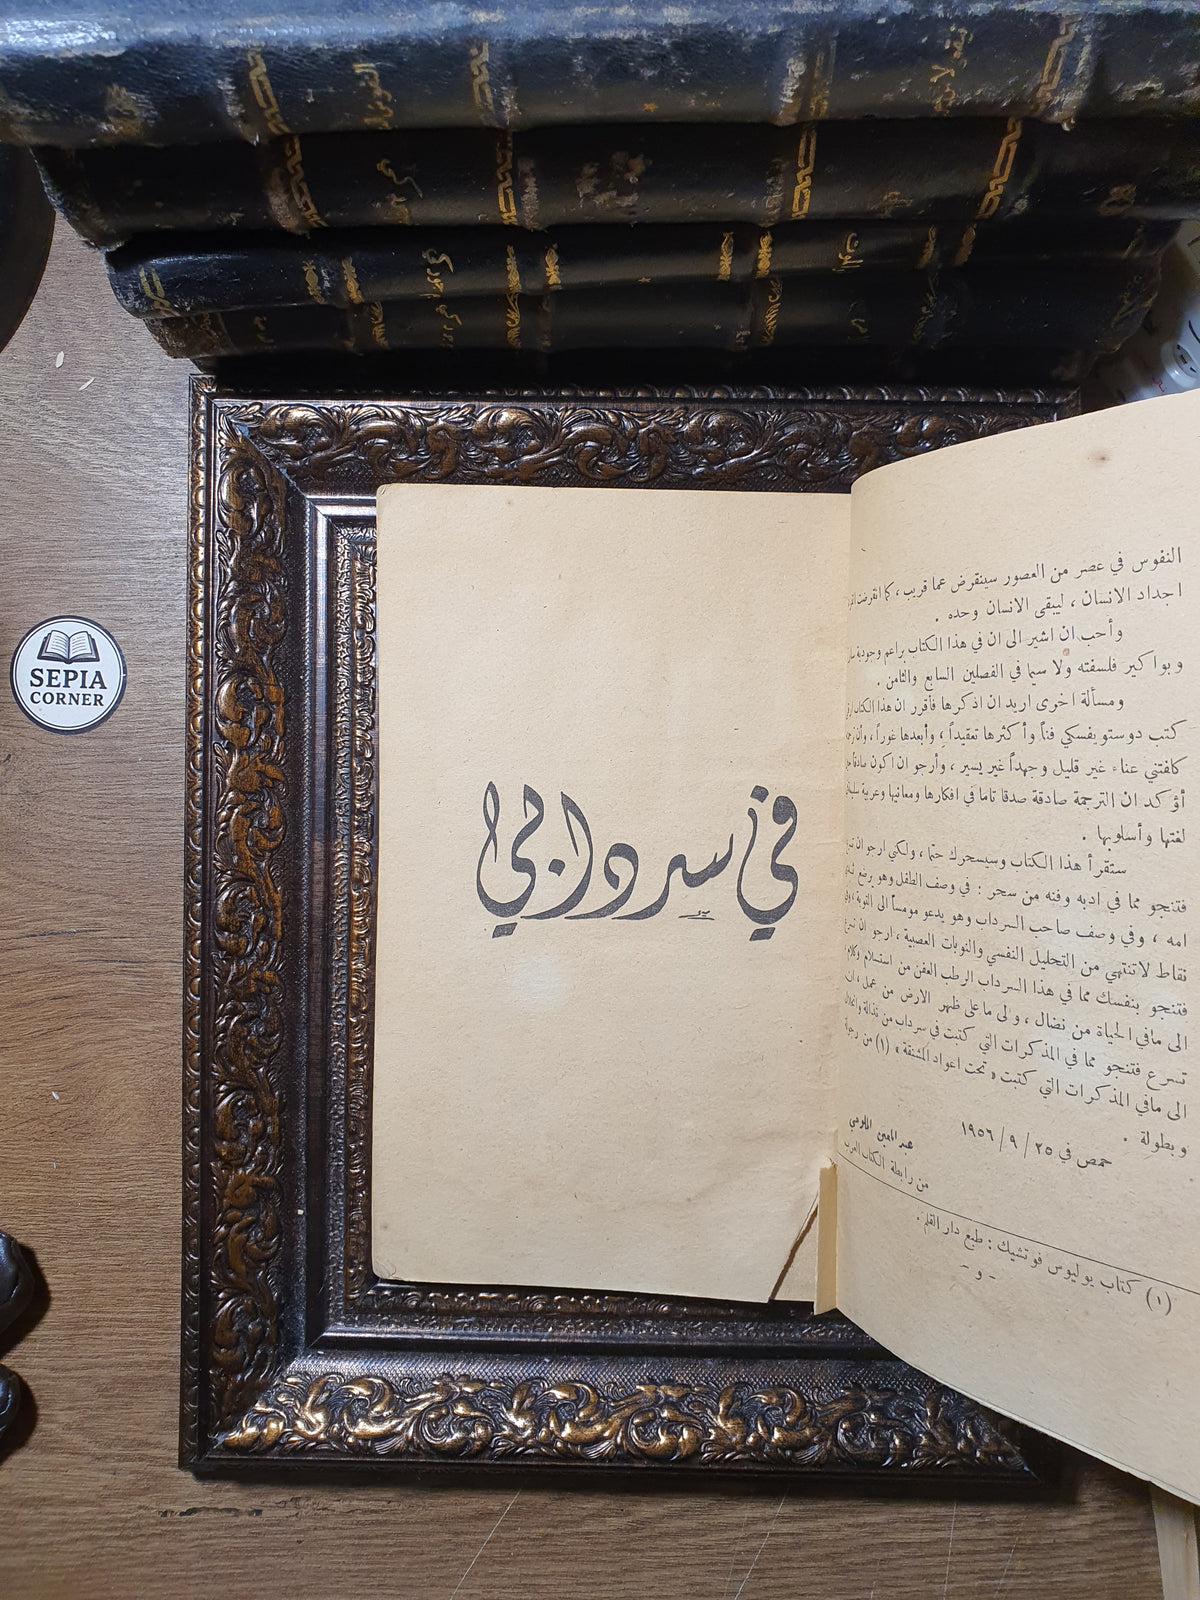 SEPIA
CORNER
النفوس في عصر من العصور سينقرض عما قريب ، كما انقرضت
اجداد الانسان ، ليبقى الانسان وحده .
وأحب ان اشير الى ان في هذا الكتاب براعم وجودية
وبواكير فلسفته ولا سيما في الفصلين السابع والثامن .
ومسألة اخرى اريد ان اذكرها فأقرر ان هذا الكتاب
كتب دوستويفسكي فناً وأكثرها تعقيداً ، وأبعدها غوراً ،
كلفتني عناء غير قليل وجهداً غير يسير ، وأرجو ان اكون
أؤكد ان الترجمة صادقة صدقا تاما في افكارها ومعانيها وعربية
لغتها وأسلوبها .
ستقرأ هذا الكتاب وسيسحرك حتما ، ولكني ارجو ان
فتنجو مما في ادبه وفنه من سحر : في وصف الطفل وهو يرضع
امه ، وفي وصف صاحب السرداب وهو يدعو مومساً الى التوبة ،
نقاط لا تنتهي من التحليل النفسي والنوبات العصبية ، ارجو ان
فتنجو بنفسك مما في هذا السرداب الرطب العفن من استسلام
الى مافي الحياة من نضال ، والى ما على ظهر الارض من عمل ،
تسرع فتنجو مما في المذكرات التي كتبت في سرداب من نذالة
الى مافي المذكرات التي كتبت « تحت اعواد المشنقة » (١) من
وبطولة .
حمص في ٢٥ / ٩ / ١٩٥٦
عبد المعين الملوحي
من رابطة الكتاب العرب
(١) كتاب يوليوس فوتشيك : طبع دار القلم .
- و -
في سردابي